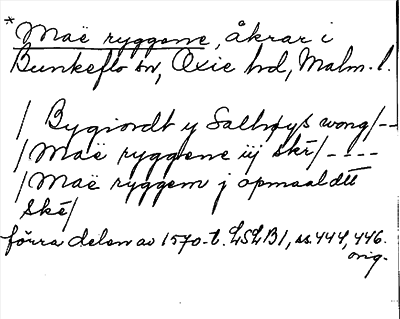 * Maë ryggene, åkrar i
Bunkeflo sn, Oxie hd, Malm. l.
/ Bygiordt y Salhøys wong /--
/ Maë ryggene iij skr/ ----
/ Maë ryggem j opmaaldtt
Ske/
förra delen av 1570-t. LSLB1, ss. 444, 446.
orig.